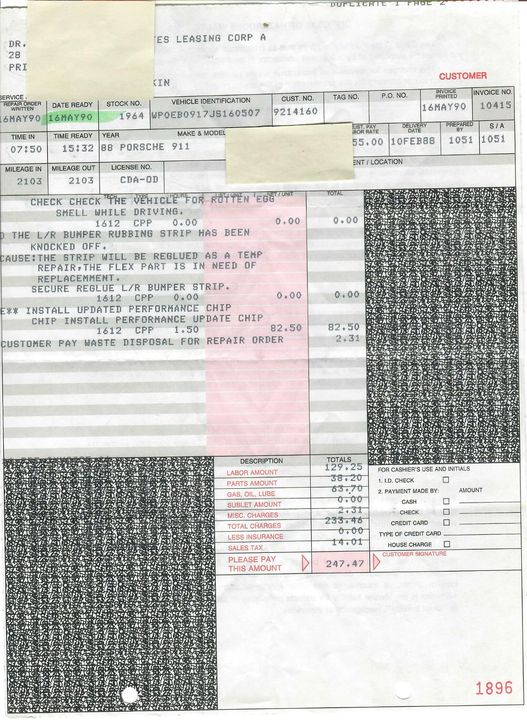 DUPLICATE 1 PAGE 2
DR. ES LEASING CORP A
28
PRI
KIN
CUSTOMER
SERVICE
REPAIR ORDER WRITTEN DATE READY STOCK NO. VEHICLE IDENTIFICATION CUST. NO. TAG NO. P.O. NO. INVOICE PRINTED INVOICE NO.
16MAY90 16MAY90 1964 WPOEB0917JS160507 9214160 16MAY90 10415
TIME IN TIME READY YEAR MAKE & MODEL CUST. PAY LABOR RATE DELIVERY DATE PREPARED BY S / A
07:50 15:32 88 PORSCHE 911 55.00 10FEB88 1051 1051
MILEAGE IN MILEAGE OUT LICENSE NO. ENT / LOCATION
2103 2103 CDA-OD
TOTAL
CHECK CHECK THE VEHICLE FOR ROTTEN EGG
SMELL WHILE DRIVING.
1612 CPP 0.00 0.00 0.00
D THE L/R BUMPER RUBBING STRIP HAS BEEN
KNOCKED OFF.
CAUSE:THE STRIP WILL BE REGLUED AS A TEMP
REPAIR,THE FLEX PART IS IN NEED OF
REPLACEMMENT.
SECURE REGLUE L/R BUMPER STRIP.
1612 CPP 0.00 0.00 0.00
E** INSTALL UPDATED PERFORMANCE CHIP
CHIP INSTALL PERFORMANCE UPDATE CHIP
1612 CPP 1.50 82.50 82.50
CUSTOMER PAY WASTE DISPOSAL FOR REPAIR ORDER 2.31
DESCRIPTION TOTALS
LABOR AMOUNT 129.25
PARTS AMOUNT 38.20
GAS, OIL, LUBE 63.70
SUBLET AMOUNT 0.00
MISC. CHARGES 2.31
TOTAL CHARGES 233.46
LESS INSURANCE 0.00
SALES TAX 14.01
PLEASE PAY THIS AMOUNT 247.47
FOR CASHIER'S USE AND INITIALS
1. I.D. CHECK
2. PAYMENT MADE BY: AMOUNT
CASH
CHECK
CREDIT CARD
TYPE OF CREDIT CARD
HOUSE CHARGE
CUSTOMER SIGNATURE
1896